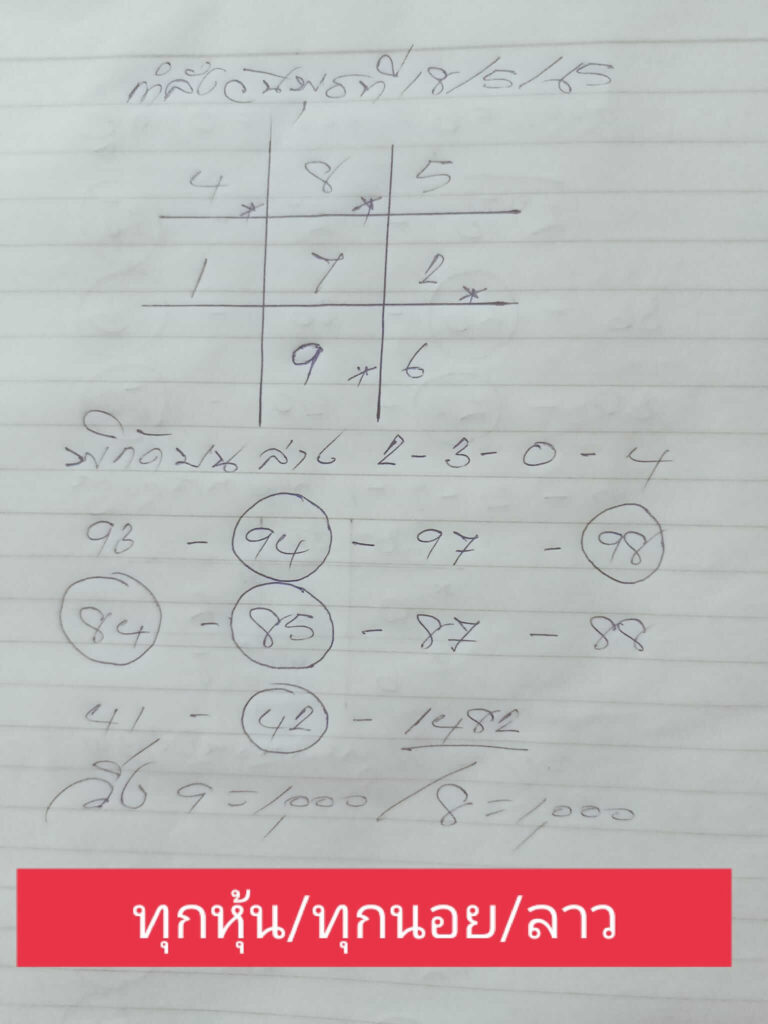 กำลังวันพุธที่ 18/5/65
4 * 8 * 5
1 7 2 *
9 * 6
พิกัดบน ล่าง 2-3-0-4
93 - 94 - 97 - 98
84 - 85 - 87 - 88
41 - 42 - 1482
วิ่ง 9=1,000/8=1,000
ทุกหุ้น/ทุกนอย/ลาว